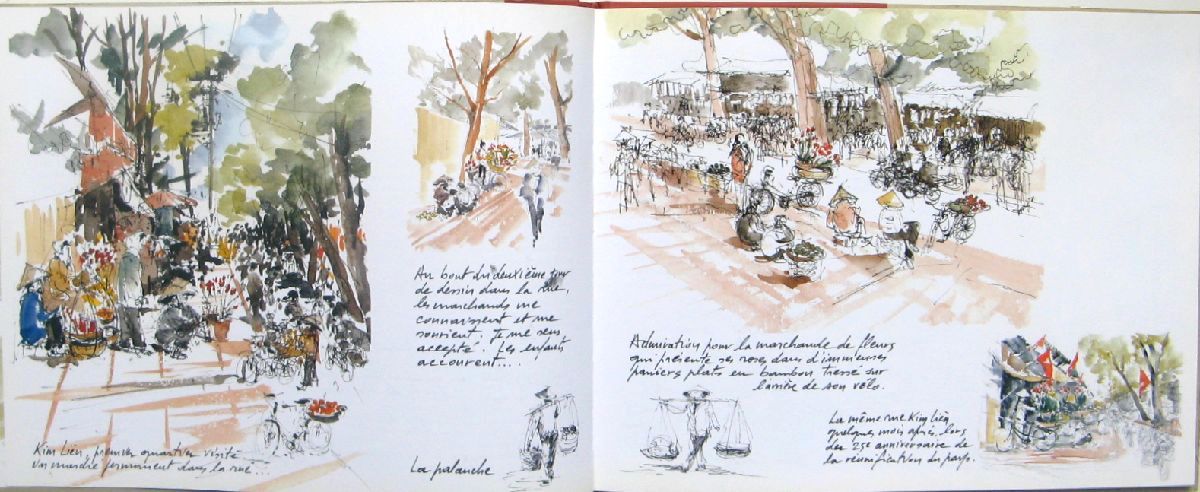 Kim Liên, premier quartier visité
Un marché permanent dans la rue...
Au bout du deuxième jour
de dessin dans la rue,
les marchands me
connaissent et me
sourient. Je me sens
accepté. Les enfants
accourent....
La palanche
Admiration pour la marchande de fleurs
qui présente ses roses dans d'immenses
paniers plats en bambou tressé sur
l'arrière de son vélo.
La même rue Kim Liên,
quelques mois après, lors
du 25e anniversaire de
la réunification du pays.